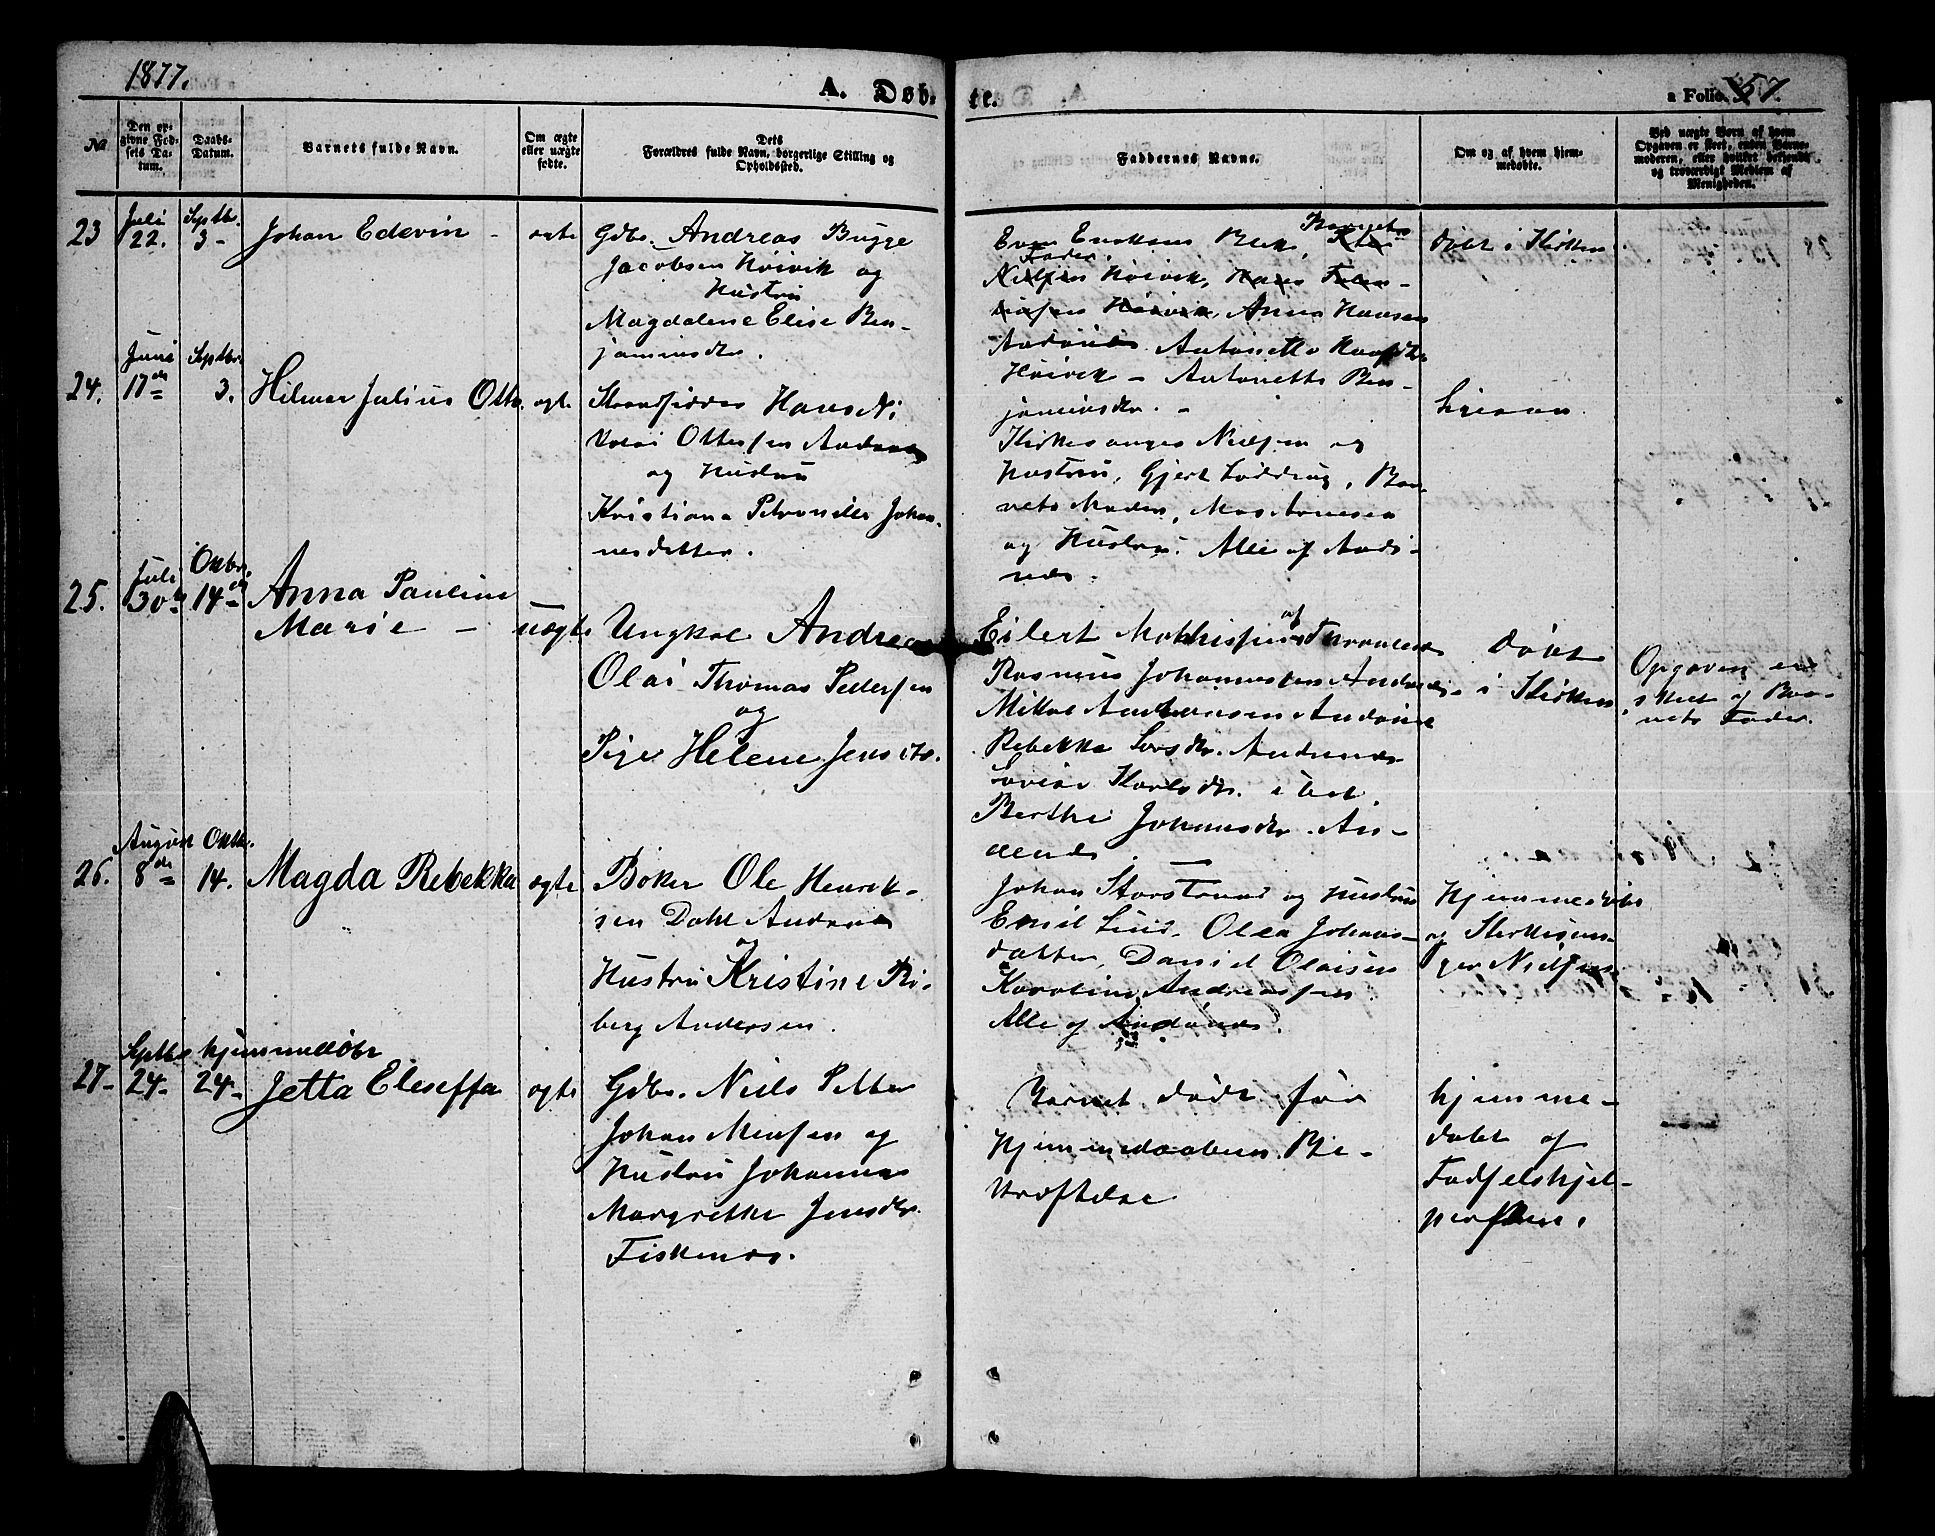 1877.
A. Døb-
te.
a Folio 57.
No
Den opgivne Fødsels Datum.
Daabs-Datum.
Barnets fulde Navn.
Om ægte eller uægte fødte.
Dets Forældres fulde Navn, borgerlige Stilling og Opholdssted.
Faddernes Navne.
Om og af hvem hjemmedøbte.
Ved uægte Børn af hvem Opgaven er skeet, enten Barnemoderen, eller hvilket bekjendt og troværdigt Medlem af Menigheden.
23
Juli 22.
Septbr. 3-
Johan Edevin -
ægte
Gdbr. Andreas Bugge
Jacobsen Høivik og
Hustru
Magdalene Elise Ben-
jaminsdtr.
Barnets
Fader.
Høivik,
Høivik, Anna Hansen
Andønes Antonette
Høivik - Antonette Ben-
jaminsdtr. -
døbt i Kirken
24.
Juni 17de
Septbr. 3.
Hilmar Julius Otto.
ægte
Strandsidder Hans Ni
Ottersen Andenes
og Hustru
Kristiana Petronille Johan-
nesdatter.
Kirkesanger Nielsen og
Hustru, Gjert Loddrup, Bar-
nets Moder,
og Hustru. Alle af Andø-
nes.
25.
Juli 30te
Oktbr. 14de
Anna Pauline
Marie -
uægte
Ungkal Andreas
Olai Thomas Pedersen
og
Pige Helene Jensdtr.
Eilert Mathisen af
Rasmus Johannessen Andenes
Mikal Andenes
Rebekka Larsdtr. Andenes
Karlsdtr. i
Berthe Johansdtr. An-
denes.
døbt
i Kirken
Opgaven er
skeet af Bar-
nets Fader.
26.
August 8de
Oktbr. 14.
Magda Rebekka
ægte
Bøker Ole Henrik-
sen Dahl Andenes
og
Hustru Kristine Ri-
berg Andersen.
Johan Storstrand og Hustru
Emil Lind, Olea Johans-
datter, Daniel Olaisen
Karoline Andreassen
Alle af Andenes.
Hjemmedøbt
og Kirkesan-
ger Nielsen
27-
Septbr 24-
hjemmedøbt
24-
Jetta Eleseffa
ægte
Gdbr. Niels Petter
Johan og
Hustru Johanna
Margrethe Jensdtr.
Fiskenes.
Barnet døde før
Hjemmedaabens Be-
kræftelse
hjemme-
døbt af
Fødselshjel-
persken.